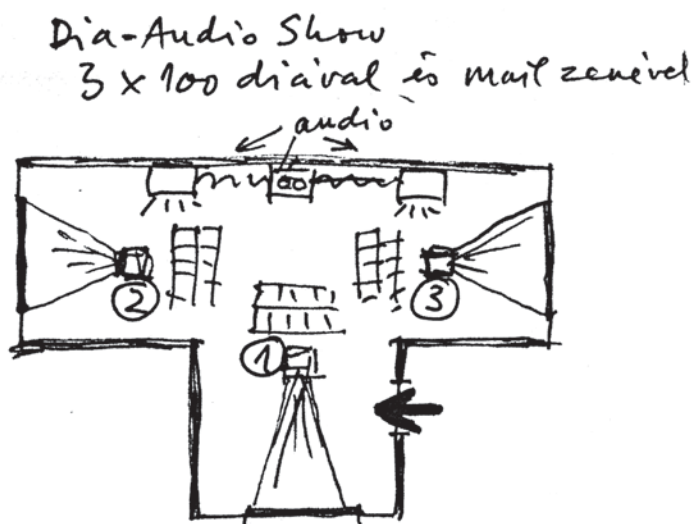 Dia-Audio Show
3 x 100 diával és mail zenével
audio
2
3
1